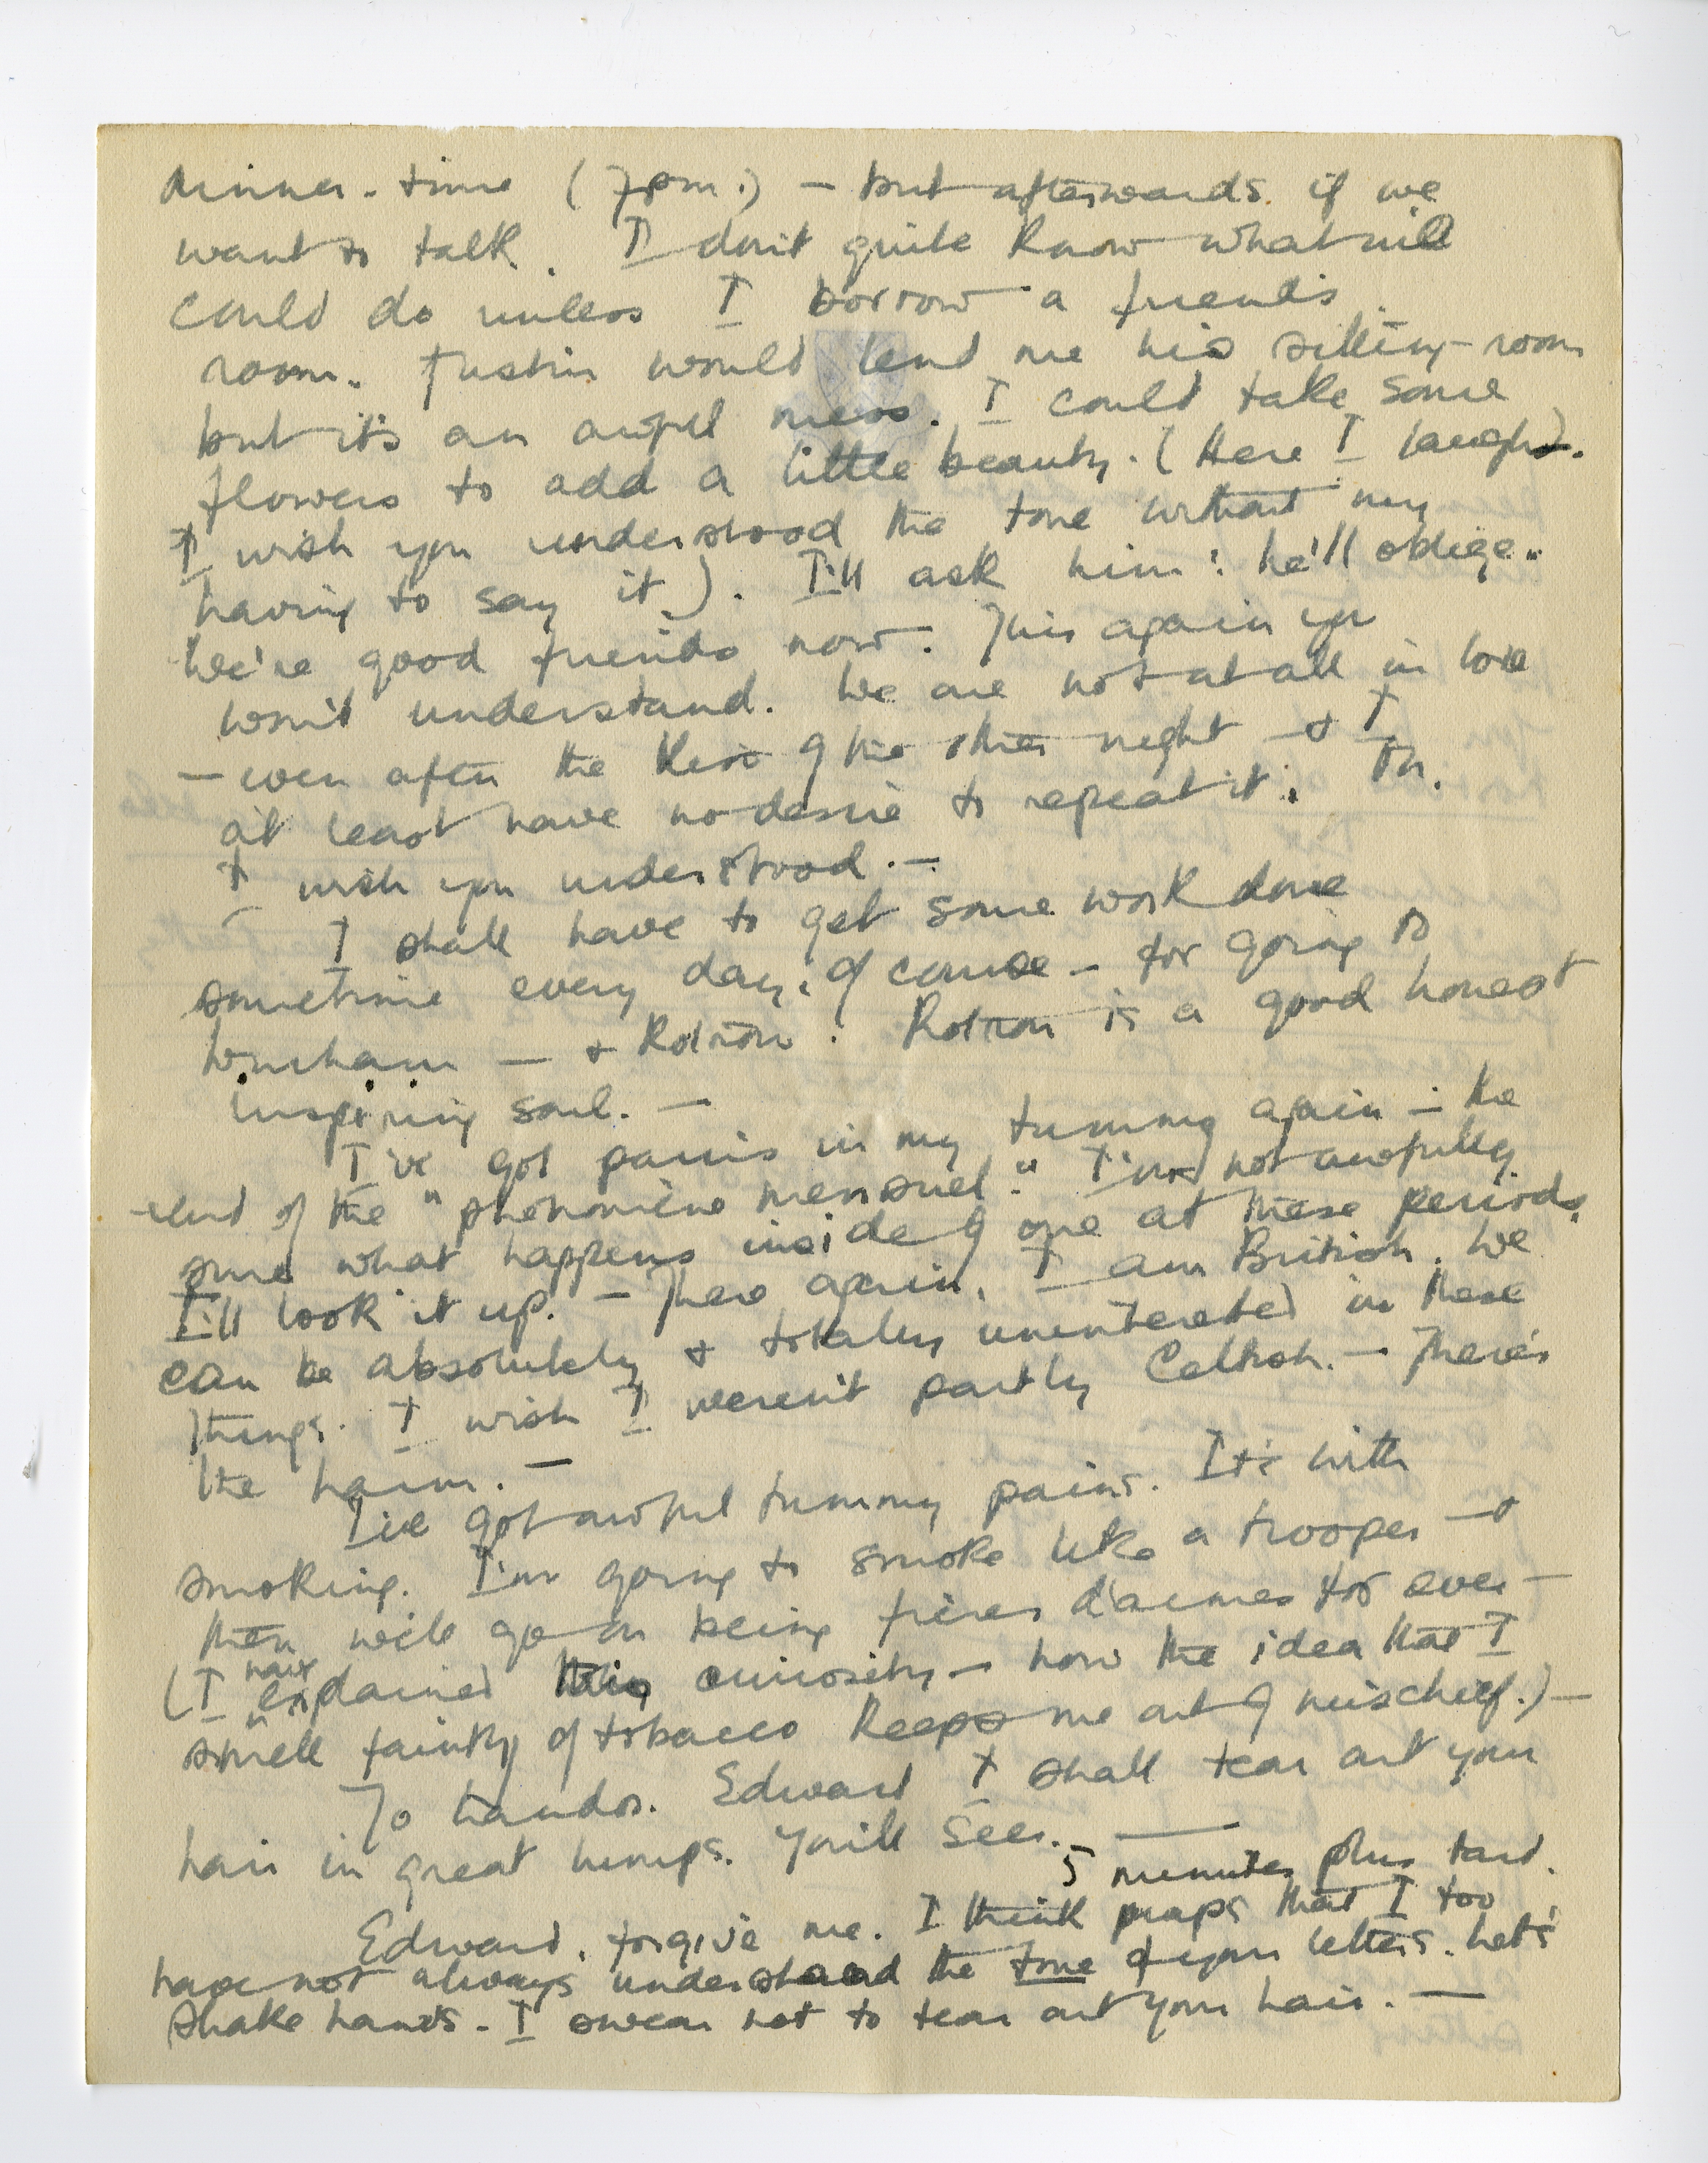 dinner-time (7pm.) – but afterwards if we
want to talk. I don't quite know what we'll
could do unless I borrow a friend's
room. Justin would lend me his sitting-room
but it's an awful mess. I could take some
flowers to add a little beauty. (Here I laugh.
I wish you understood the tone without my
having to say it). I'll ask him: he'll oblige.
We're good friends now. This again you
won't understand. We are not at all in love
– even after the kiss of the other night – & I
at least have no desire to repeat it. Oh.
I wish you understood. –
I shall have to get some work done
sometime every day, of course – for going to
– & Rotrou. Rotrou is a good honest
inspiring soul. –
I've got pains in my tummy again – the
end of the "phénomène mensuel." I'm not awfully
sure what happens inside of one at these periods.
I'll look it up. – There again, I am British. We
can be absolutely & totally uninterested in these
things. I wish I weren't partly Celtish. – There's
the harm. –
I've got awful tummy pains. It's with
smoking. I'm going to smoke like a trooper – &
then we'll go on being frères d'armes for ever –
(I have explained this curiosity – how the idea that I
smell faintly of tobacco keeps me out of mischief.) –
To Edward I shall tear out your
hair in great lumps. You'll see. –
5 minutes plus tard.
Edward, forgive me. I think praps that I too
have not always understood the tone of your letters. Let's
shake hands. I swear not to tear out your hair. –